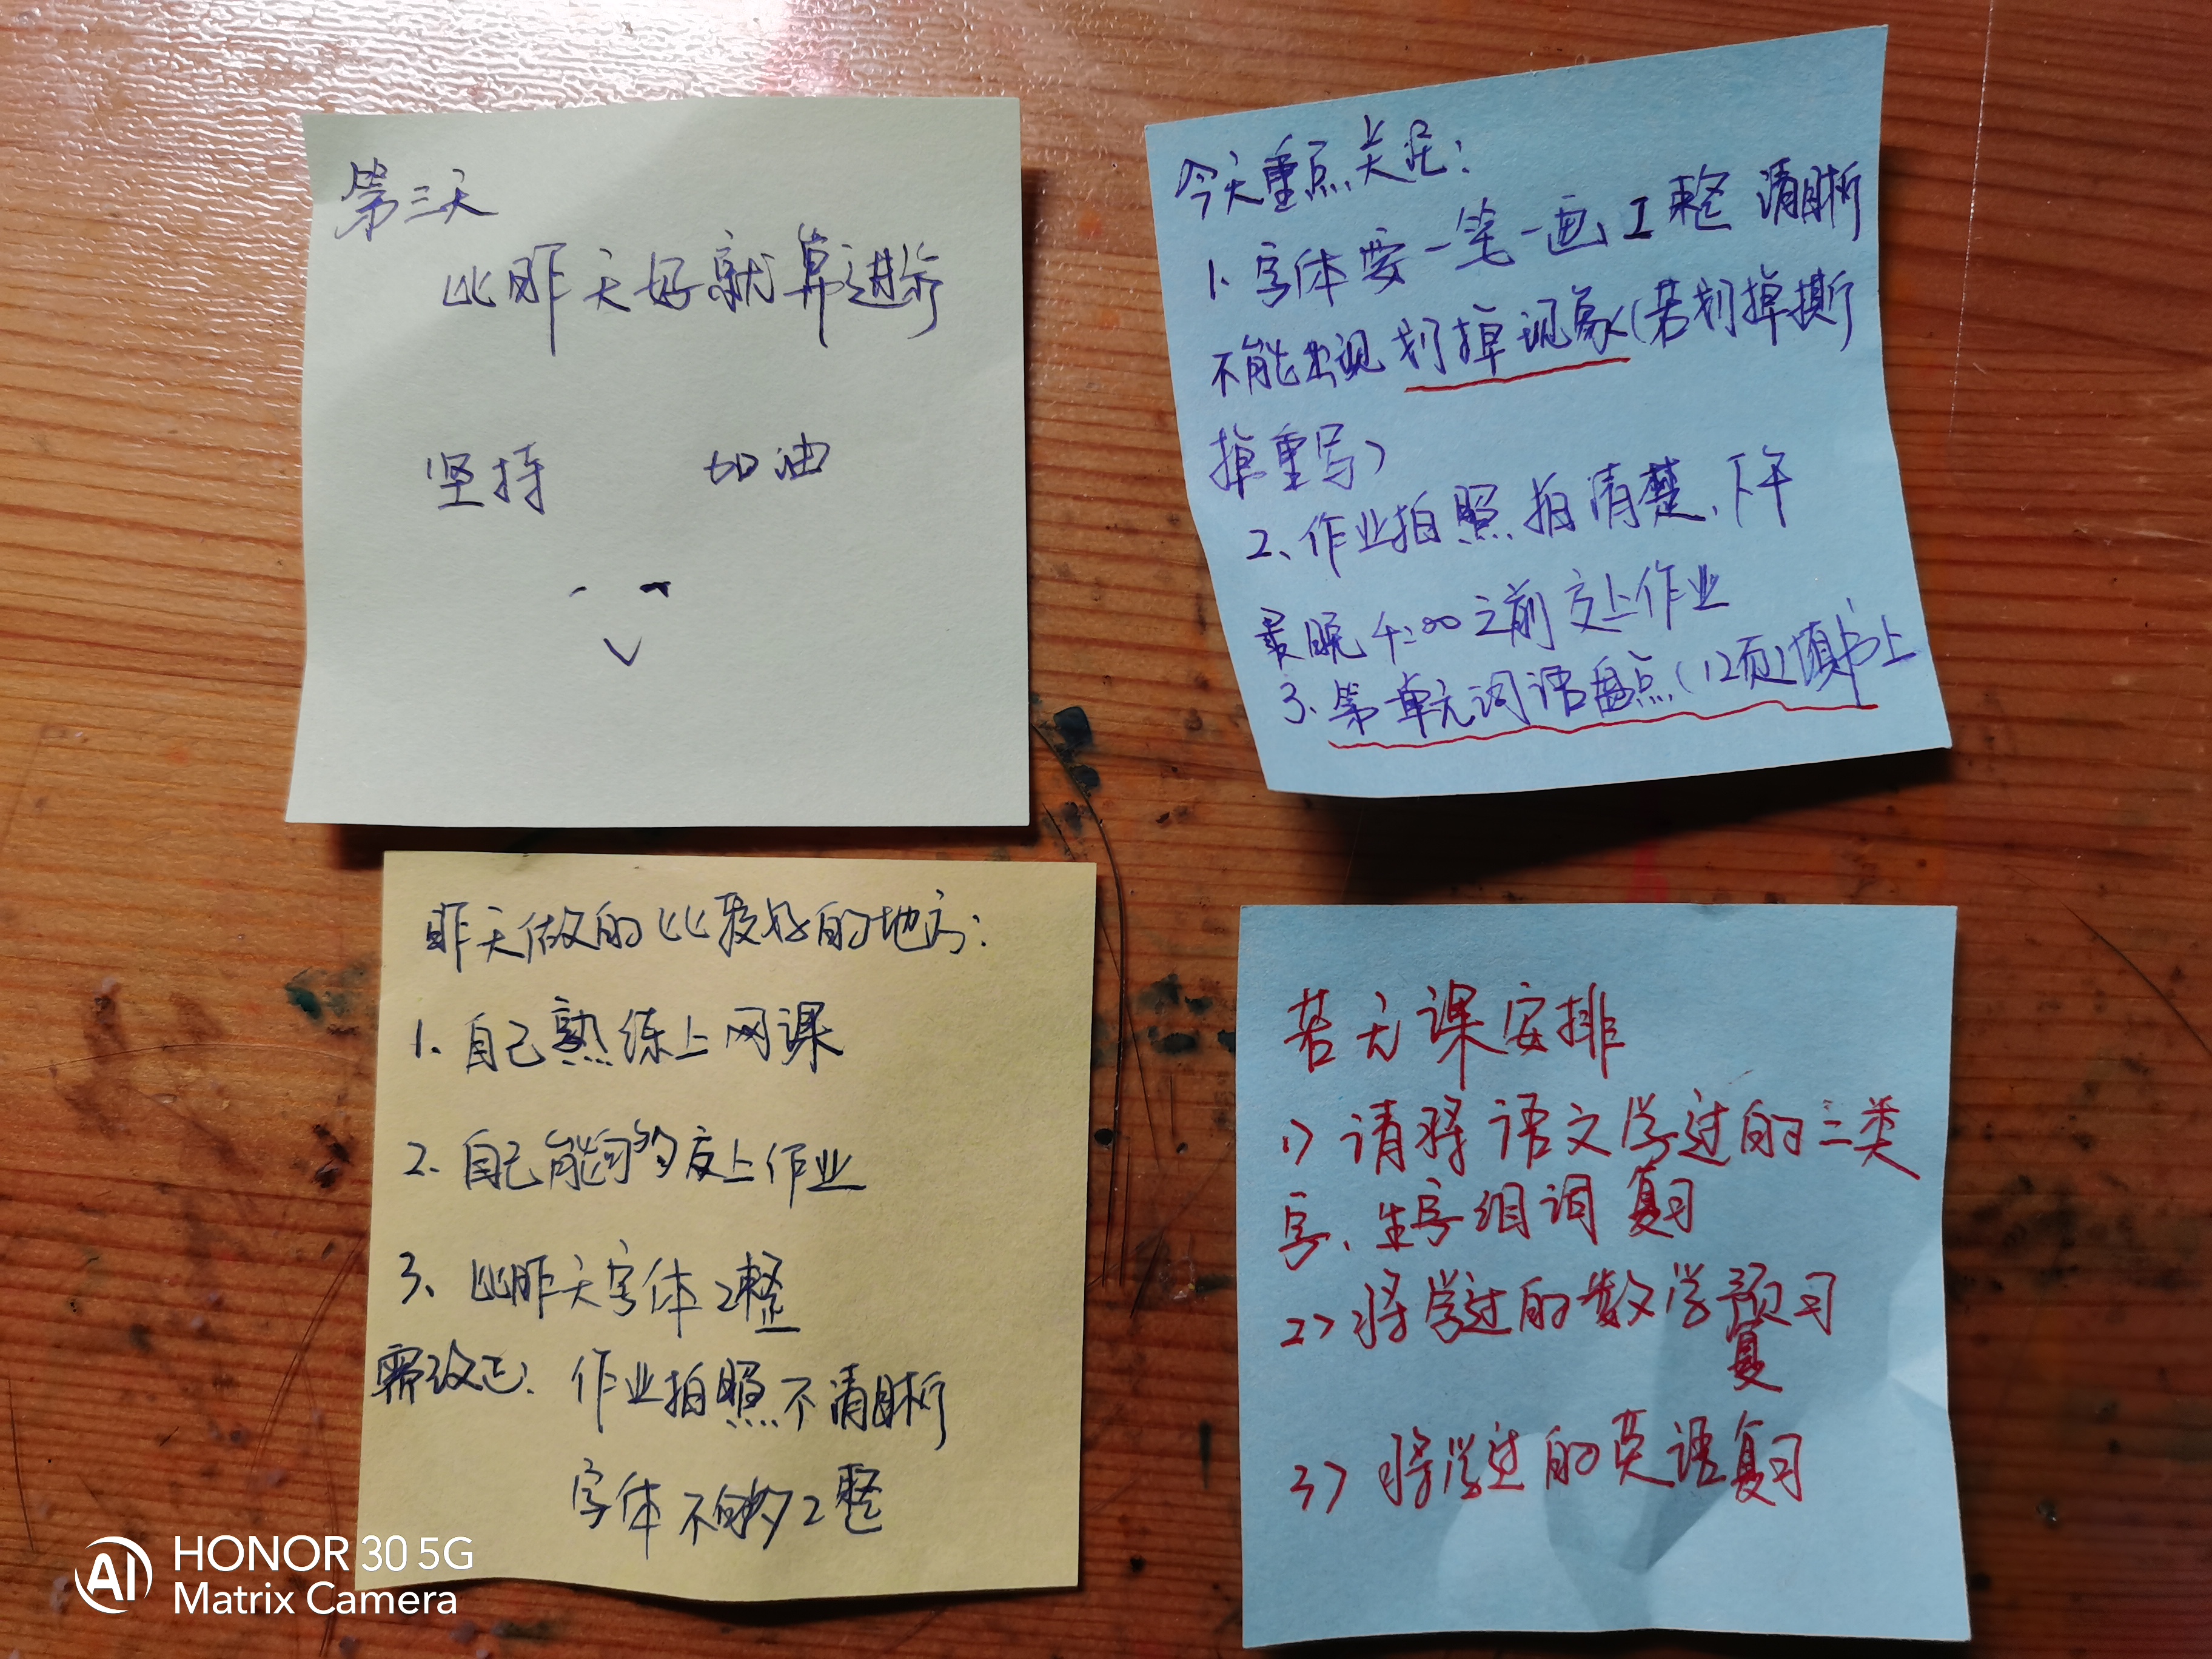 第三天
比昨天好就算进步
坚持 加油
今天重点关注：
1. 字体要一笔一画工整 清晰
不能出现划掉现象（若划掉撕
掉重写）
2、作业拍照拍清楚，下午
最晚4:00之前交上作业
3、第一单元词语盘点（12页）填书上
昨天做的比较好的地方：
1、自己熟练上网课
2、自己能够交上作业
3、比昨天字体工整
需改正：作业拍照不清晰
字体不够工整
若无课安排
1）请将语文学过的二类
字、生字组词复习
2）将学过的数学预习
复
3）将学过的英语复习
AI HONOR 30 5G
Matrix Camera